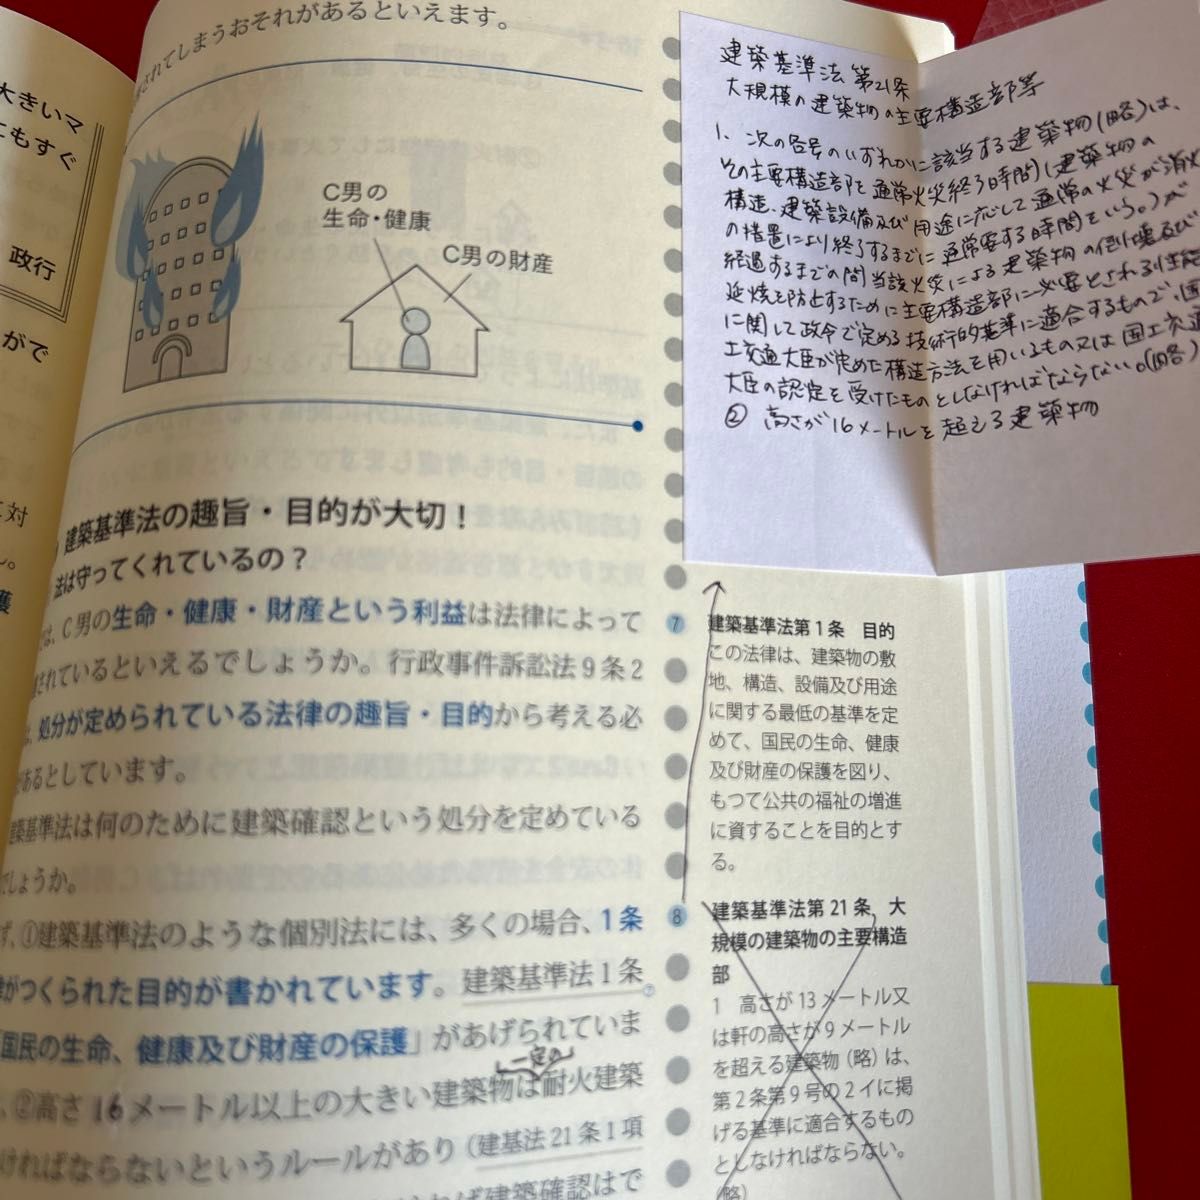 大きいマ
ともすぐ
政行
がで
対
ん。
護
されてしまうおそれがあるといえます。
C男の
生命・健康
C男の財産
建築基準法の趣旨・目的が大切！
法は守ってくれているの？
は、C男の生命・健康・財産という利益は法律によって
されているといえるでしょうか。行政事件訴訟法9条2
は、処分が定められている法律の趣旨・目的から考える必
があるとしています。
建築基準法は何のために建築確認という処分を定めている
でしょうか。
ず、①建築基準法のような個別法には、多くの場合、1条
がつくられた目的が書かれています。建築基準法1条
「国民の生命、健康及び財産の保護」があげられていま
一定の
、②高さ16メートル以上の大きい建築物は耐火建築
ければならないというルールがあり（建基法21条1項
建築確認はで
建築基準法第21条
大規模の建築物の主要構造部等
1. 次の各号のいずれかに該当する建築物(略)は、
その主要構造部を通常火災終了時間(建築物の
構造、建築設備及び用途に応じて通常の火災が消火
の措置により終了するまでに通常要する時間をいう。)が
経過するまでの間当該火災による建築物の倒壊及び
延焼を防止するために主要構造部に必要とされる性能
に関して政令で定める技術的基準に適合するもので、国
土交通大臣が定めた構造方法を用いるもの又は国土交通
大臣の認定を受けたものとしなければならない。(略)
② 高さが16メートルを超える建築物
7 建築基準法第1条 目的
この法律は、建築物の敷
地、構造、設備及び用途
に関する最低の基準を定
めて、国民の生命、健康
及び財産の保護を図り、
もつて公共の福祉の増進
に資することを目的とす
る。
8 建築基準法第21条、大
規模の建築物の主要構造
部
1 高さが13メートル又
は軒の高さが9メートル
を超える建築物（略）は、
第2条第9号の2イに掲
げる基準に適合するもの
としなければならない。
（略）